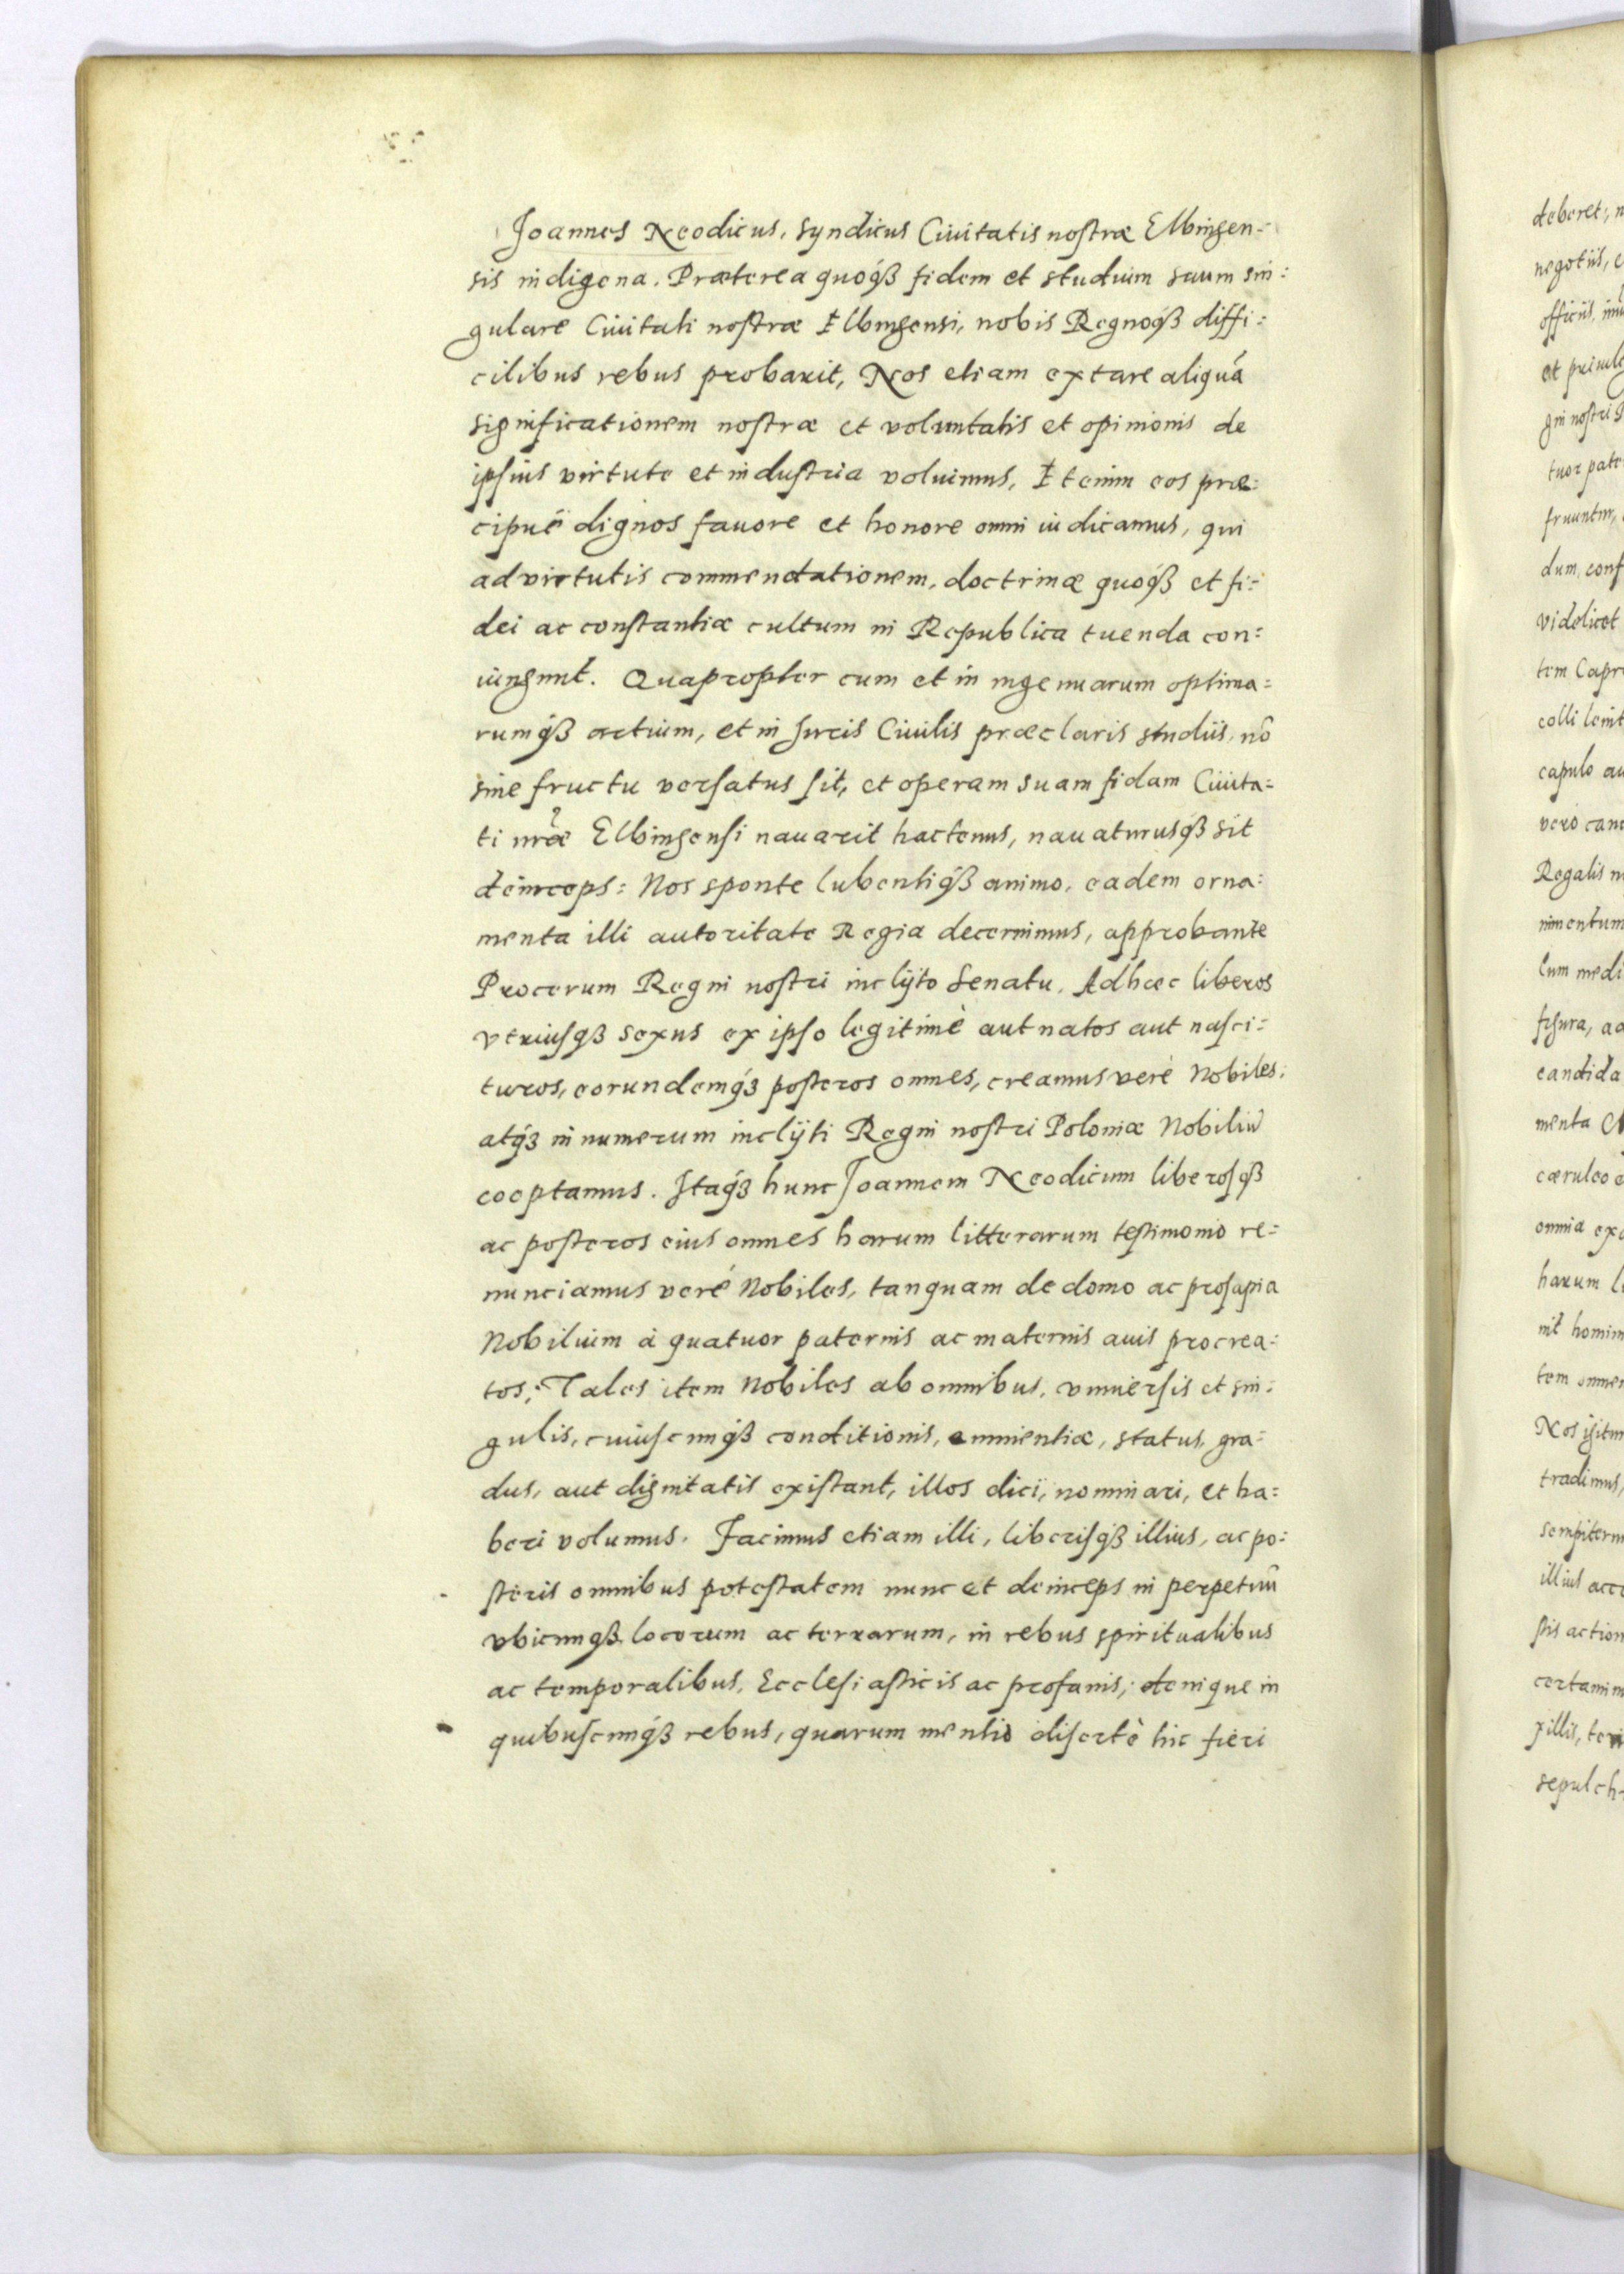 Joannes Neodicus, Syndicus Ciuitatis nostræ Elbingen=
sis indigena. Præterea quoq́ꝫ fidem et studium suum sin=
gulare Ciuitati nostræ Elbingensi, nobis Regnoq́ꝫ diffi=
cilibus rebus probarit, Nos etiam extare aliquá
significationem nostræ et voluntatis et opinionis de
ipsius virtute et industria voluimus, Etenim eos præ=
cipuè dignos fauore et honore omni iudicamus, qui
ad virtutis commendationem, doctrinæ quoq́ꝫ et fi=
dei ac constantiæ cultum in Republica tuenda con=
iungunt. Quapropter cum et in ingenuarum optima=
rumq́ꝫ artium, et in Juris Ciuilis præclaris studiis, nō
sine fructu versatus sit, et operam suam fidam Ciuita=
ti nr̃æ Elbingensi nauarit hactenus, nauaturusq́ꝫ sit
deinceps: Nos sponte lubentiq́ꝫ animo, eadem orna=
menta illi autoritate Regia decernimus, approbante
Procerum Regni nostri inclÿto Senatu. Adhæc liberos
vtriusq́ꝫ sexus ex ipso legitimè aut natos aut nasci=
turos, eorundemq́ꝫ posteros omnes, creamus verè Nobiles,
atq́ꝫ in numerum inclÿti Regni nostri Poloniæ Nobiliū
cooptamus. Itaq́ꝫ hunc Joannem Neodicum liberosq́ꝫ
ac posteros eius omnes harum litterarum testimonio re=
nunciamus verè Nobiles, tanquam de domo ac prosapia
Nobilium à quatuor paternis ac maternis auis procrea=
tos; Tales item Nobiles ab omnibus, vniuersis et sin=
gulis, cuiuscunq́ꝫ conditionis, eminentiæ, status, gra=
dus, aut dignitatis existant, illos dici, nominari, et ha=
beri volumus. Facimus etiam illi, liberisq́ꝫ illius, ac po=
steris omnibus potestatem nunc et deinceps in perpetuū
vbicunq́ꝫ locorum ac terrarum, in rebus spiritualibus
ac temporalibus, Ecclesiasticis ac profanis; denique in
quibuscunq́ꝫ rebus, quarum mentio disertè hic fieri
deberet,
negotiis,
officiis,
et
gni nostri
tuor
fruuntur,
dum,
videlicet
tem
colli
capulo
vero
Regalis
lum
figura,
candida
menta
cæruleo
omnia
harum
nit
tem
Nos igitur
tradimus,
illius
stis